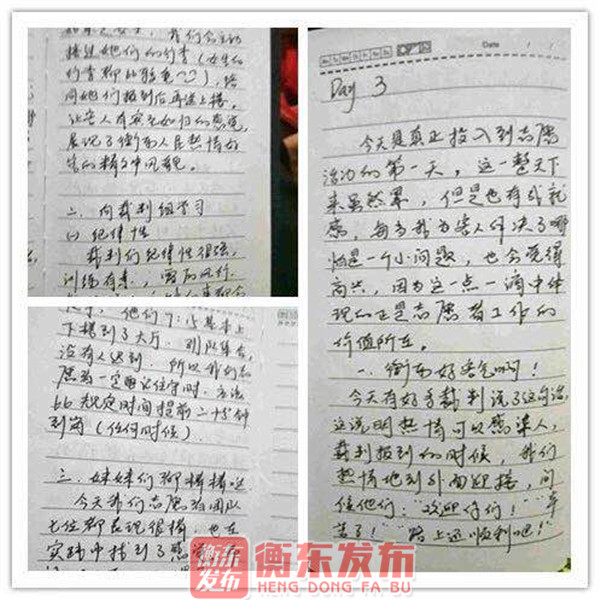 接过她们的行李(女生的
行李都比较重
问她们报到后再送上楼。
让客人有宾至如归的感觉,
展现了衡东人民热情好
客的精神风貌。
二、向裁判组学习
(1) 纪律性
裁判们纪律性很强,
训练有素,雷厉风行
下楼到了大厅,列队集合,
没有人迟到 所以我们志
愿者一定要记住守时,应该
比规定时间提前二十分钟
到岗(任何时候)
三、妹妹们都棒棒哒
今天我们志愿者团队
七位都表现很棒,也在
实践中找到了感
Date
Day 3
今天是真正投入到志愿
活动的第一天,这一整天下
来虽然累,但是也有成就
感,每当我为客人解决了哪
怕是一个小问题,也会觉得
高兴,因为这一点一滴中体
现的正是志愿者工作的
价值所在。
一、衡东好客气啊!
今天有好多裁判说了这句话,
这说明热情可以感染人,
裁判报到的时候,我们
热情地到外面迎接,问
候他们:“欢迎你们!”“辛
苦了!”“路上还顺利吧!”
衡东
发布
衡东发布
HENG DONG FA BU